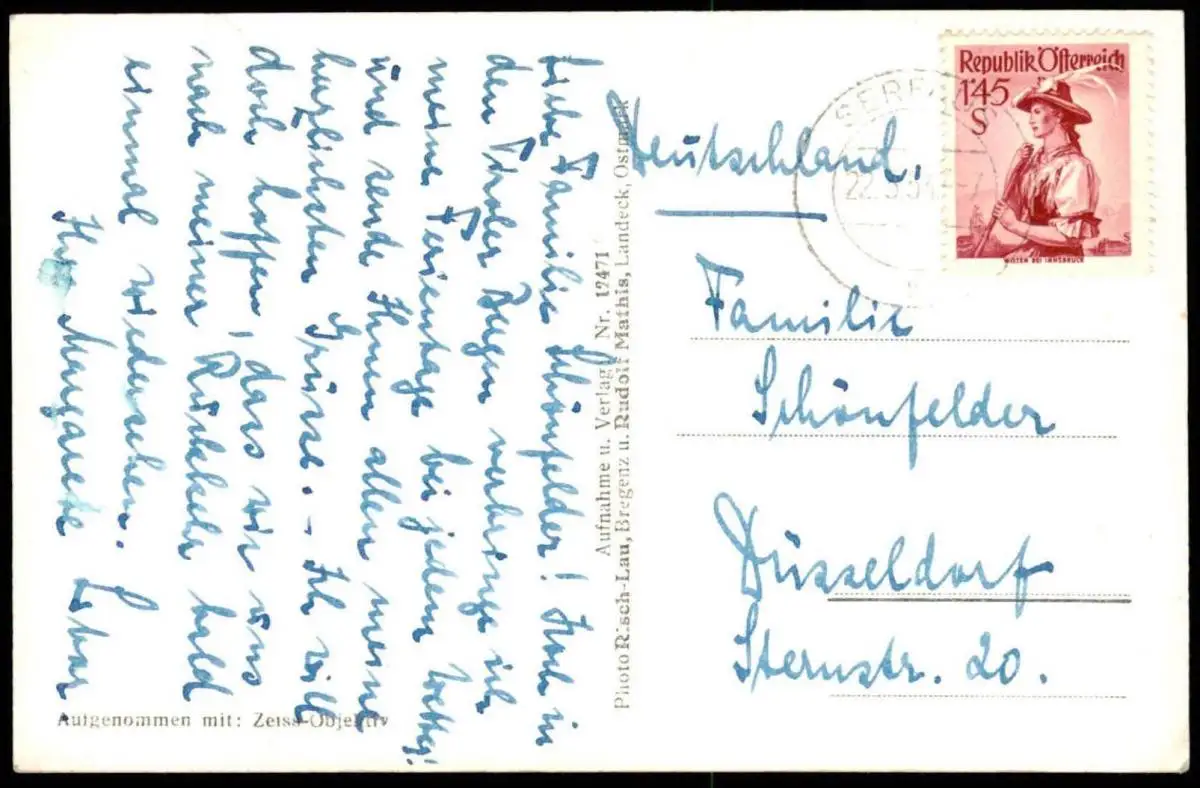 Liebe Familie Schönfelder! Hoch in
den Tiroler Bergen verbringe ich
meine Ferientage bei jedem Wetter!
und sende Ihnen allen meine
herzlichsten Grüsse. – Ich will
doch hoffen, dass wir uns
nach meiner Rückkehr bald
einmal wiedersehen.
Ihre Margarete
Aufgenommen mit: Zeiss-Objektiv
Aufnahme u. Verlag Nr. 12471
Photo Risch-Lau, Bregenz u. Rudolf Mathis, Landeck, Ostmark
Republik Österreich
1'45
S
WILTEN BEI INNSBRUCK
SERFAUS
Deutschland.
Familie
Schönfelder
Düsseldorf
Sternstr. 20.